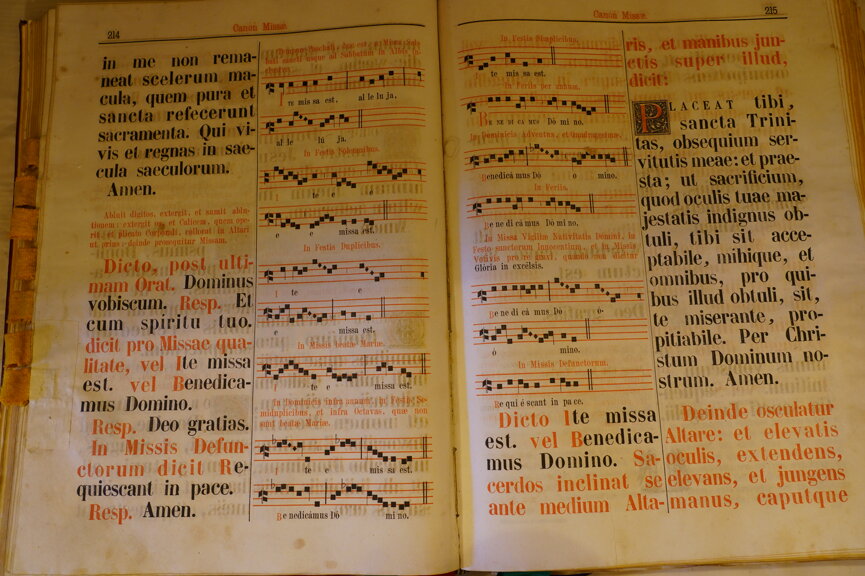 214
Canon Missæ
in me non rema-
neat scelerum ma-
cula, quem pura et
sancta refecerunt
sacramenta. Qui vi-
vis et regnas in sae-
cula saeculorum.
Amen.
Abluit digitos, extergit, et sumit ablu-
tionem: extergit os et Calicem, quem ope-
rit, et plicato Corporali, collocat in Altari
ut prius: deinde prosequitur Missam.
Dicto, post ulti-
mam Orat. Dominus
vobiscum. Resp. Et
cum spiritu tuo.
dicit pro Missae qua-
litate, vel Ite missa
est. vel Benedica-
mus Domino.
Resp. Deo gratias.
In Missis Defun-
ctorum dicit Re-
quiescant in pace.
Resp. Amen.
usque ad Sabbatum in Albis
I te mis sa est. al le lu ja,
al le lú ja.
In Festis Solemnibus.
I te e
e e missa est.
In Festis Duplicibus.
I te e
e missa est.
In Missis beatæ Mariæ.
I te e missa est.
In Dominicis infra annum, in Festis Se-
miduplicibus, et infra Octavas, quæ non
sunt beatæ Mariæ.
I te e mis sa est.
Be nedicámus Dó mi no.
Canon Missæ
215
In Festis Simplicibus.
I te mis sa est.
In Feriis per annum.
BE NE DI CA MUS Dó mi no.
In Dominicis Adventus, et Quadragesimæ.
Benedicá mus Dó o mino.
In Feriis.
Be ne di cá mus Dó mi no.
In Missa Vigiliæ Nativitatis Domini, in
Festo sanctorum Innocentium, et in Missis
Votivis pro re gravi, quando non dicitur
Glória in excélsis.
Be ne di cá mus Dó ó-
ó mino.
In Missis Defunctorum.
Re qui é scant in pa ce.
Dicto Ite missa
est. vel Benedica-
mus Domino. Sa-
cerdos inclinat se
ante medium Alta-
ris, et manibus jun-
ctis super illud,
dicit:
PLACEAT tibi,
sancta Trini-
tas, obsequium ser-
vitutis meae: et prae-
sta; ut sacrificium,
quod oculis tuae ma-
jestatis indignus ob-
tuli, tibi sit acce-
ptabile, mihique, et
omnibus, pro qui-
bus illud obtuli, sit,
te miserante, pro-
pitiabile. Per Chri-
stum Dominum no-
strum. Amen.
Deinde osculatur
Altare: et elevatis
oculis, extendens,
elevans, et jungens
manus, caputque